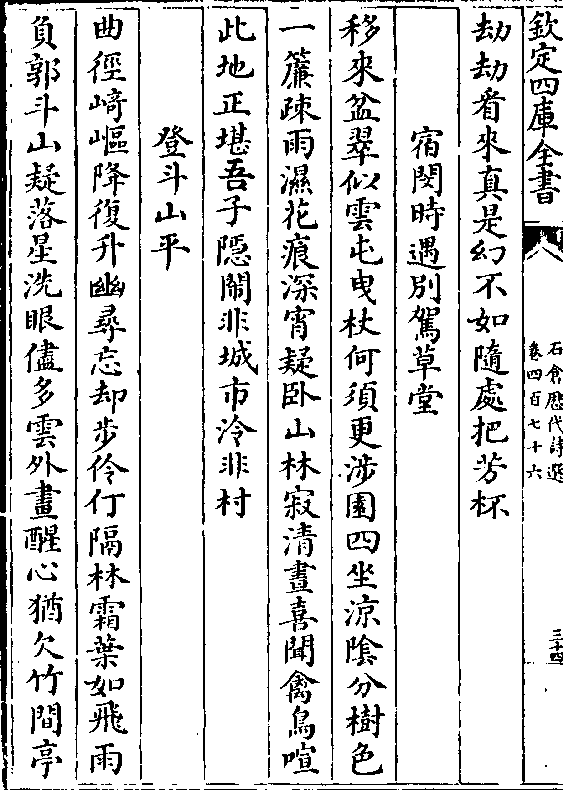 欽定四庫全書
石倉歷代詩選
卷四百七十六
三十四
劫劫看來真是幻不如隨處把芳杯
宿閔時遇別駕草堂
移來盆翠似雲屯曳杖何須更涉園四坐涼陰分樹色
一簾疎雨濕花痕深宵疑卧山林寂清晝喜聞禽鳥喧
此地正堪吾子隱鬧非城市冷非村
登斗山平
曲徑﨑嶇降復升幽尋忘却步伶仃隔林霜葉如飛雨
負郭斗山疑落星洗眼儘多雲外畫醒心猶欠竹間亭